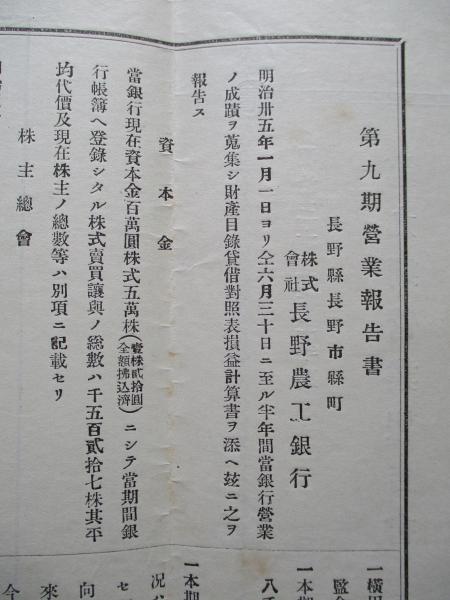 第九期營業報告書
長野縣長野市縣町
株式會社長野農工銀行
明治卅五年一月一日ヨリ仝六月三十日ニ至ル半年間當銀行營業
ノ成蹟ヲ蒐集シ財產目錄貸借對照表損益計算書ヲ添ヘ玆ニ之ヲ
報告ス
資本金
當銀行現在資本金百萬圓株式五萬株(壹株貳拾圓全額拂込濟)ニシテ當期間銀
行帳簿ヘ登錄シタル株式賣買讓與ノ総數ハ千五百貳拾七株其平
均代價及現在株主ノ總數等ハ別項ニ記載セリ
株主總會
一橫田
監
一本期
八
一本期
況
セ
向
來
今